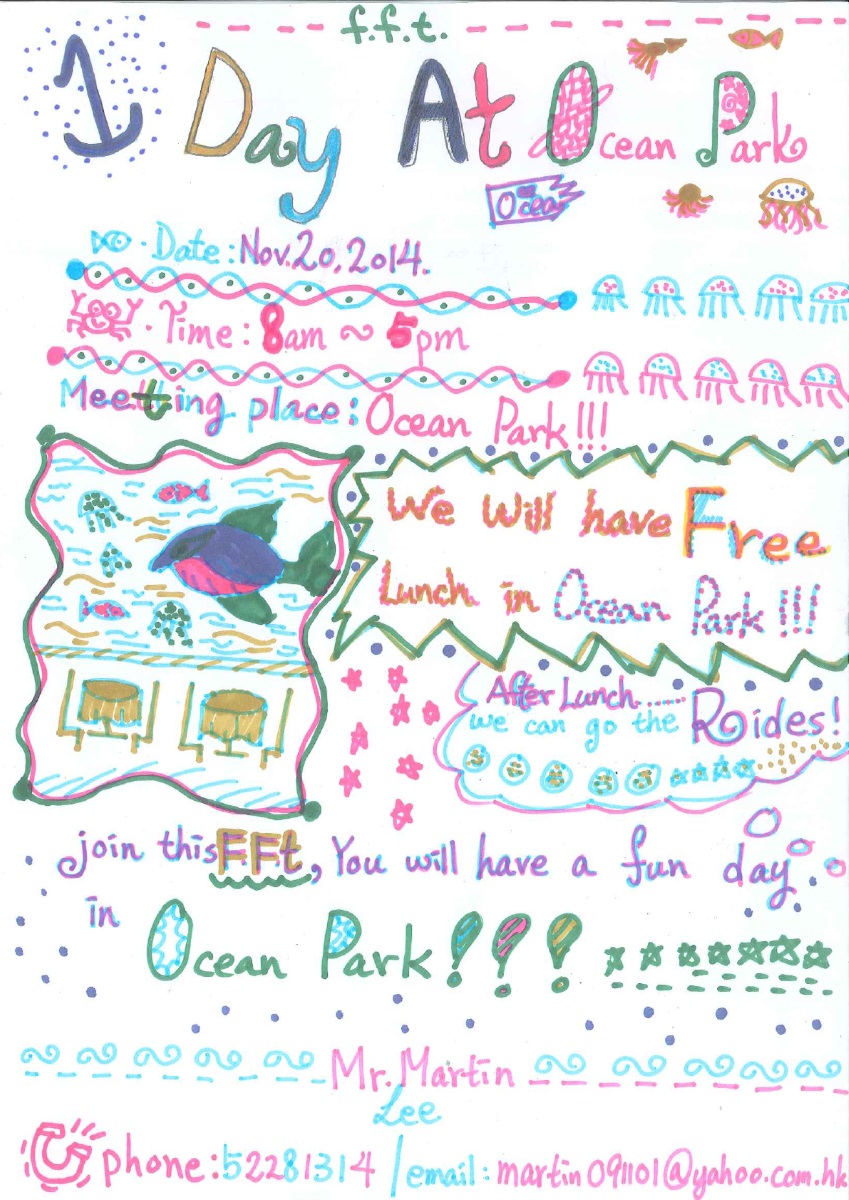 f.f.t.
1 Day At Ocean Park
Ocea
Date: Nov.20.2014.
Time: 8am ~ 5pm
Meetting place: Ocean Park!!!
We will have Free
Lunch in Ocean Park!!!
After Lunch......
we can go the Rides!
join this FFt, You will have a fun day
in Ocean Park!!!
Mr. Martin
Lee
phone: 52281314 / email: martin091101@yahoo.com.hk